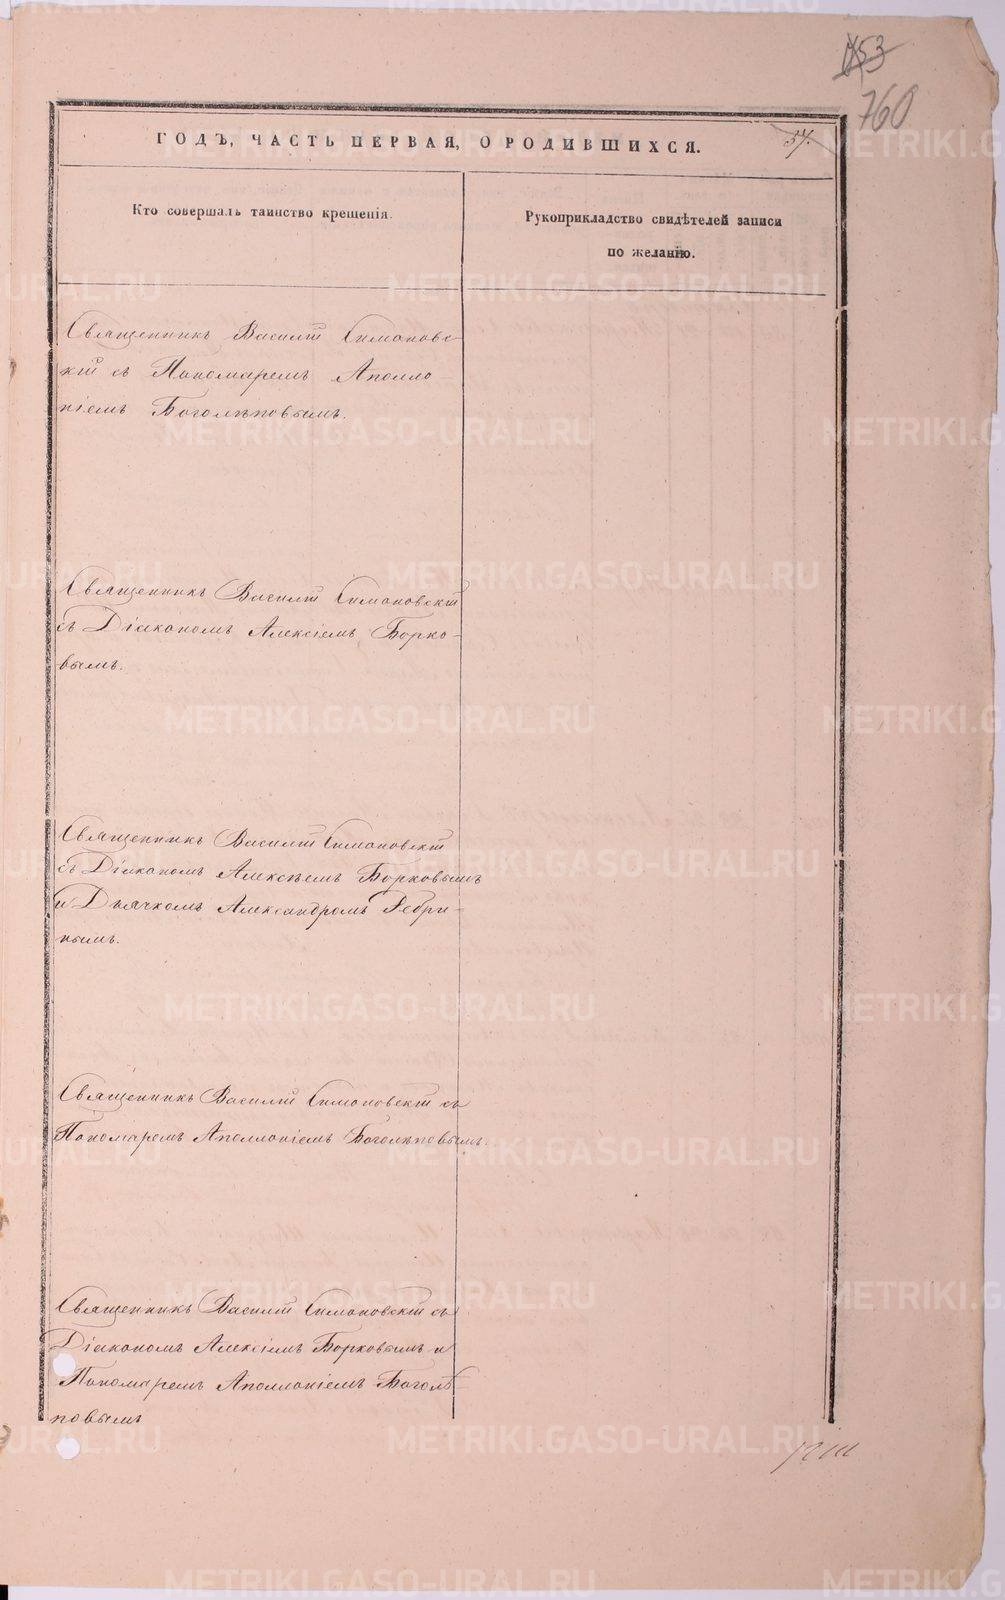 153
760
ГОДЪ, ЧАСТЬ ПЕРВАЯ, О РОДИВШИХСЯ.
57.
Кто совершалъ таинство крещенія.
Рукоприкладство свидѣтелей записи
по желанію.
Священникъ Василій Симановс-
кій съ Пономаремъ Аполло-
ніемъ Боголѣповымъ.
Священникъ Василій Симановскій
съ Діакономъ Алексіемъ Борко-
вымъ.
Священникъ Василій Симановскій
съ Діакономъ Алексѣемъ Борковымъ
и Дьячкомъ Александромъ Ребри-
нымъ.
Священникъ Василій Симановскій съ
Пономаремъ Аполлоніемъ Боголѣповымъ.
Священникъ Василій Симановскій съ
Діакономъ Алексіемъ Борковымъ и
Пономаремъ Аполлоніемъ Боголѣ-
повымъ
METRIKI.GASO-URAL.RU